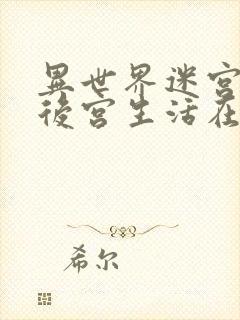 異世界迷宮
後宮生活在
希尔